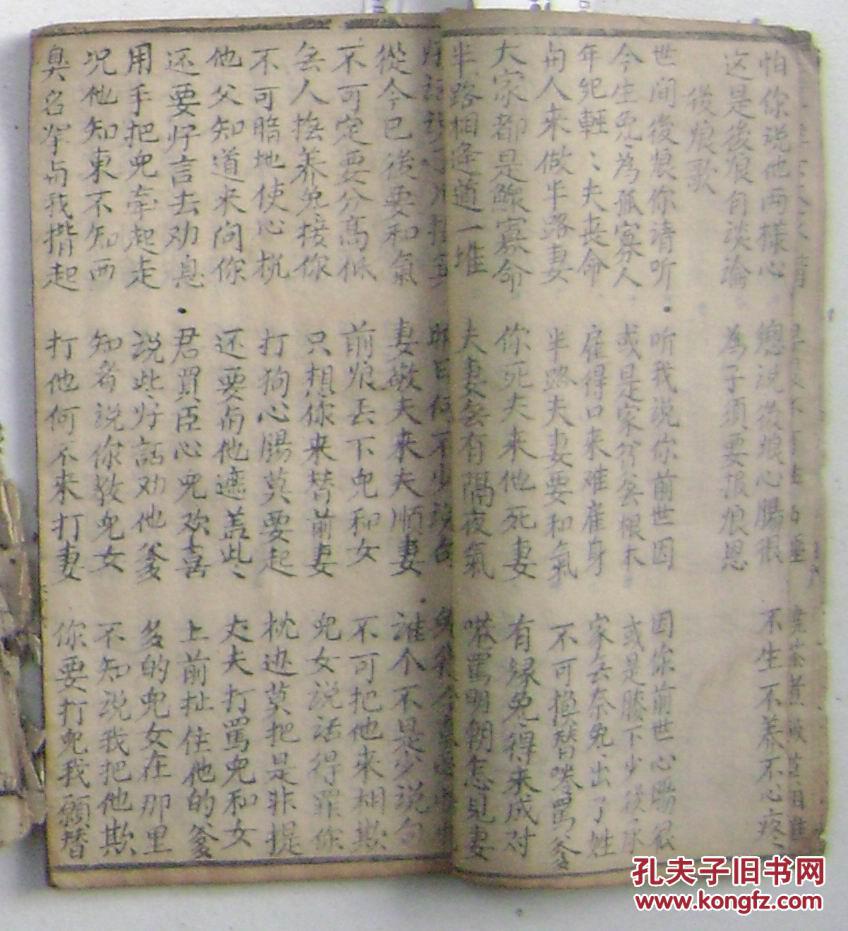 怕你说他两樣心 總说後娘心腸狠 不生不养不心疼〻
这是後娘自谈論 為子須要报娘恩
後娘歌
世间後娘你请听 听我说你前世因 因你前世心腸狠
今生兒為孤寡人 或是家贫無根本 或是膝下少後承
年纪輕〻夫丧命 雇得口来难雇身 家丢奈兒出了姓
人来做半路妻 半路夫妻要和氣 不可換替罵爹
大家都是鰥寡命 你死夫来他死妻 有緣兒得来成对
半路相逢道一堆 夫妻無有隔夜氣 罵明朝怎見妻
從今已後要和氣 妻敬夫来夫順妻 誰个不是少说句
不可定要分高低 前娘丢下兒和女 不可把他来相欺
無人撫养兒接你 只想你来替前妻 兒女说话得罪你
不可瞻地使心机 打狗心腸莫要起 枕边莫把是非提
他父知道来问你 还要与他遮盖些〻 丈夫打罵兒和女
还要好言去劝息 君買臣心兒欢喜 上前扯住他的爹
用手把兒牵起走 说些好話劝他爹 多的兒女在那里
况他知東不知西 知者说你教兒女 不知说我把他欺
臭名举与我揹起 打他何不来打妻 你要打兒我願替
孔夫子旧书网
www.kongfz.com